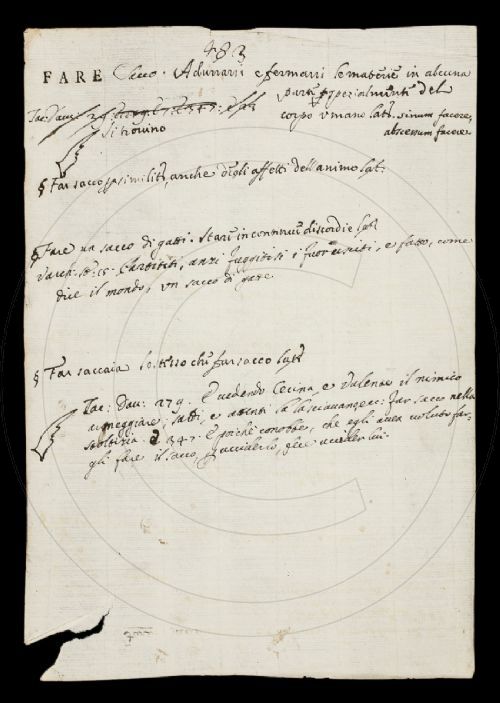 483
FARE Sacco. Adunarsi e fermarsi le materie in alcuna
parte spezialmente del
corpo umano lat. sinum facere,
abscessum facere
Tac: Dav:
si trovino
§ Far sacco per similit. anche degli affetti dell'animo lat.
§ Fare un sacco di gatti. Stare in continue discordie lat.
Varch. st: 55. Cartiditi, anzi fuggitisi i fuorusciti, e fatto, come
dice il mondo, un sacco di gatte
§ Far saccaia lo stesso che far sacco lat.
Tac: Dav: 279. Evedendo Cecina, e Valente il nimico
armeggiare; saldi, e attenti la lasciavangeli: far sacco nella
stoltizia. E 347. E poiché conobbe, che egli avea voluto far-
gli fare il sacco, e ucciderlo, fece uccider lui.